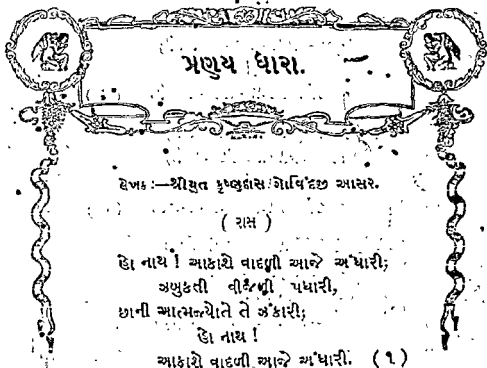 પ્રણય ધારા.
લેખકઃ—શ્રીયુત કૃષ્ણદાસ ગોવિંદજી આસર.
( રાસ )
હો નાથ ! આકાશે વાદળી આજે અંધારી;
ઝબુકતી વીજળી પધારી,
છાની આત્મજ્યોતે તે ઝંકારી;
હો નાથ !
આકાશે વાદળી આજે અંધારી. (૧)